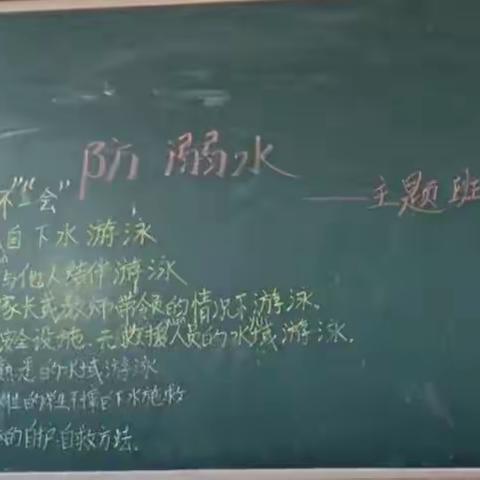 防溺水
——主题班
不"一会"
自下水游泳
与他人结伴游泳
家长或教师带领的情况下游泳、
安全设施、无救援人员的水域游泳、
熟悉的水域游泳
性的学生不擅自下水施救
的自护自救方法、